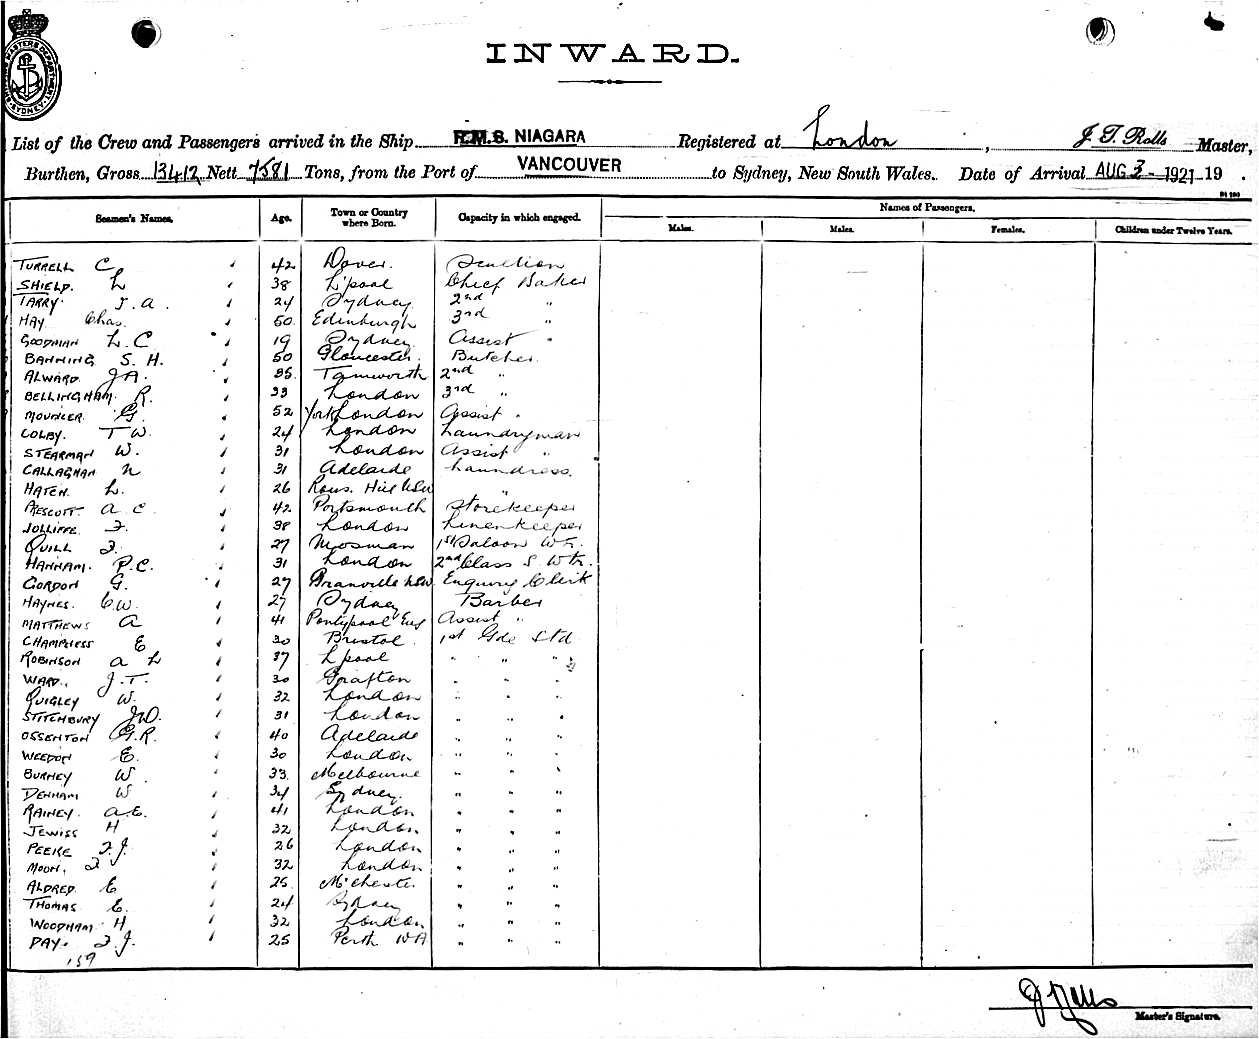 INWARD.
List of the Crew and Passengers arrived in the Ship R.M.S. NIAGARA Registered at London, J. T. Rolls Master,
Burthen, Gross 13412 Nett 7581 Tons, from the Port of VANCOUVER to Sydney, New South Wales. Date of Arrival AUG 3 - 1921 19 .
Seamen's Names. Age. Town or Country where Born. Capacity in which engaged. Names of Passengers.
Males. Males. Females. Children under Twelve Years.
TURRELL C 42 Dover. Scullion
SHIELD. L 38 L'pool Chief Baker
TARRY. J. A. 24 Sydney 2nd "
HAY Chas. 50 Edinburgh 3rd "
GOODMAN L. C 19 Sydney Assist "
BANNING S. H. 50 Gloucester. Butcher
ALWARD. J A. 35 Tamworth 2nd "
BELLINGHAM. R. 33 London 3rd "
G. 52 York London Assist "
COLBY. T W. 24 London Laundryman
STEARMAN W. 31 London Assist "
CALLAGHAN N 31 Adelaide Laundress.
HATCH. L. 26 Rous. Hill NSW "
PRESCOTT A C. 42 Portsmouth Storekeeper
JOLLIFFE F. 38 London Linenkeeper
QUILL F. 27 Mosman 1st Saloon Wtr.
HANHAM. P. C. 31 London 2nd Class S. Wtr.
GORDON G. 27 Granville NSW Enquiry Clerk
HAYNES. C. W. 27 Sydney Barber
MATTHEWS A 41 Pontypool Eng Assist "
CHAMPNESS E 30 Bristol 1st Gde Std
ROBINSON A L 37 L'pool " " "
WARD. J. T. 30 Grafton " " "
QUIGLEY W. 32 London " " "
STITCHBURY J W. 31 London " " "
OSSENTON G. R. 40 Adelaide " " "
WEEDON E. 30 London " " "
BURNEY W. 33 Melbourne " " "
DENHAM W 34 Sydney. " " "
RAINEY. A. E. 41 London " " "
JEWISS H 32 London " " "
PEEKE F. J. 26 London " " "
MOON, F 32 London " " "
ALDRED E 25 M'chester. " " "
THOMAS E. 24 Sydney " " "
WOODHAM. H 32 London " " "
DAY. F. J. 25 Perth WA " " "
159
J Rolls
Master's Signature.